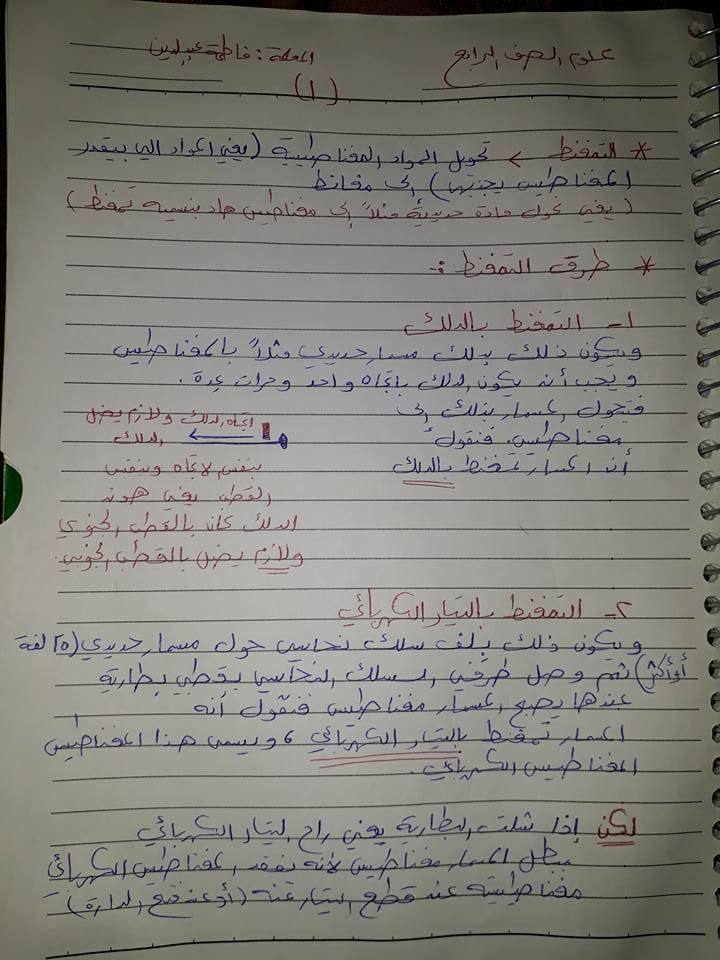 علوم الصف الرابع
المعلمة : فاطمة
(١)
* التمغنط ← تحويل المواد المغناطيسية (يعني المواد الي بيقدر
المغناطيس يجذبها) إلى مغانط
(يعني نحول مادة حديدية مثلاً إلى مغناطيس هاد بنسميه تمغنط)
* طرق التمغنط :-
١- التمغنط بالدلك
ويكون ذلك بدلك مسمار حديدي مثلاً بالمغناطيس
ويجب أن يكون الدلك باتجاه واحد ومرات عدة .
فيتحول المسمار بذلك إلى
مغناطيس. فنقول
أن المسمار تمغنط بالدلك
اتجاه الدلك ولازم يضل
الدلك
بنفس الاتجاه وبنفس
القطب يعني هونه
الدلك كان بالقطب الجنوبي
ولازم يضل بالقطب الجنوبي.
٢- التمغنط بالتيار الكهربائي
ويكون ذلك بلف سلك نحاسي حول مسمار حديدي (١٥ لفة
أو أكثر) ثم وصل طرفي السلك النحاسي بقطبي بطارية
عندها يصبح المسمار مغناطيس فنقول أنه
المسمار تمغنط بالتيار الكهربائي ، ويسمى هذا المغناطيس
المغناطيس الكهربائي.
لكن إذا شلت البطارية يعني راح التيار الكهربائي
ببطل المسمار مغناطيس لأنه بفقد المغناطيس الكهربائي
مغناطيسيته عند قطع التيار عنه (أو عند فتح الدارة)